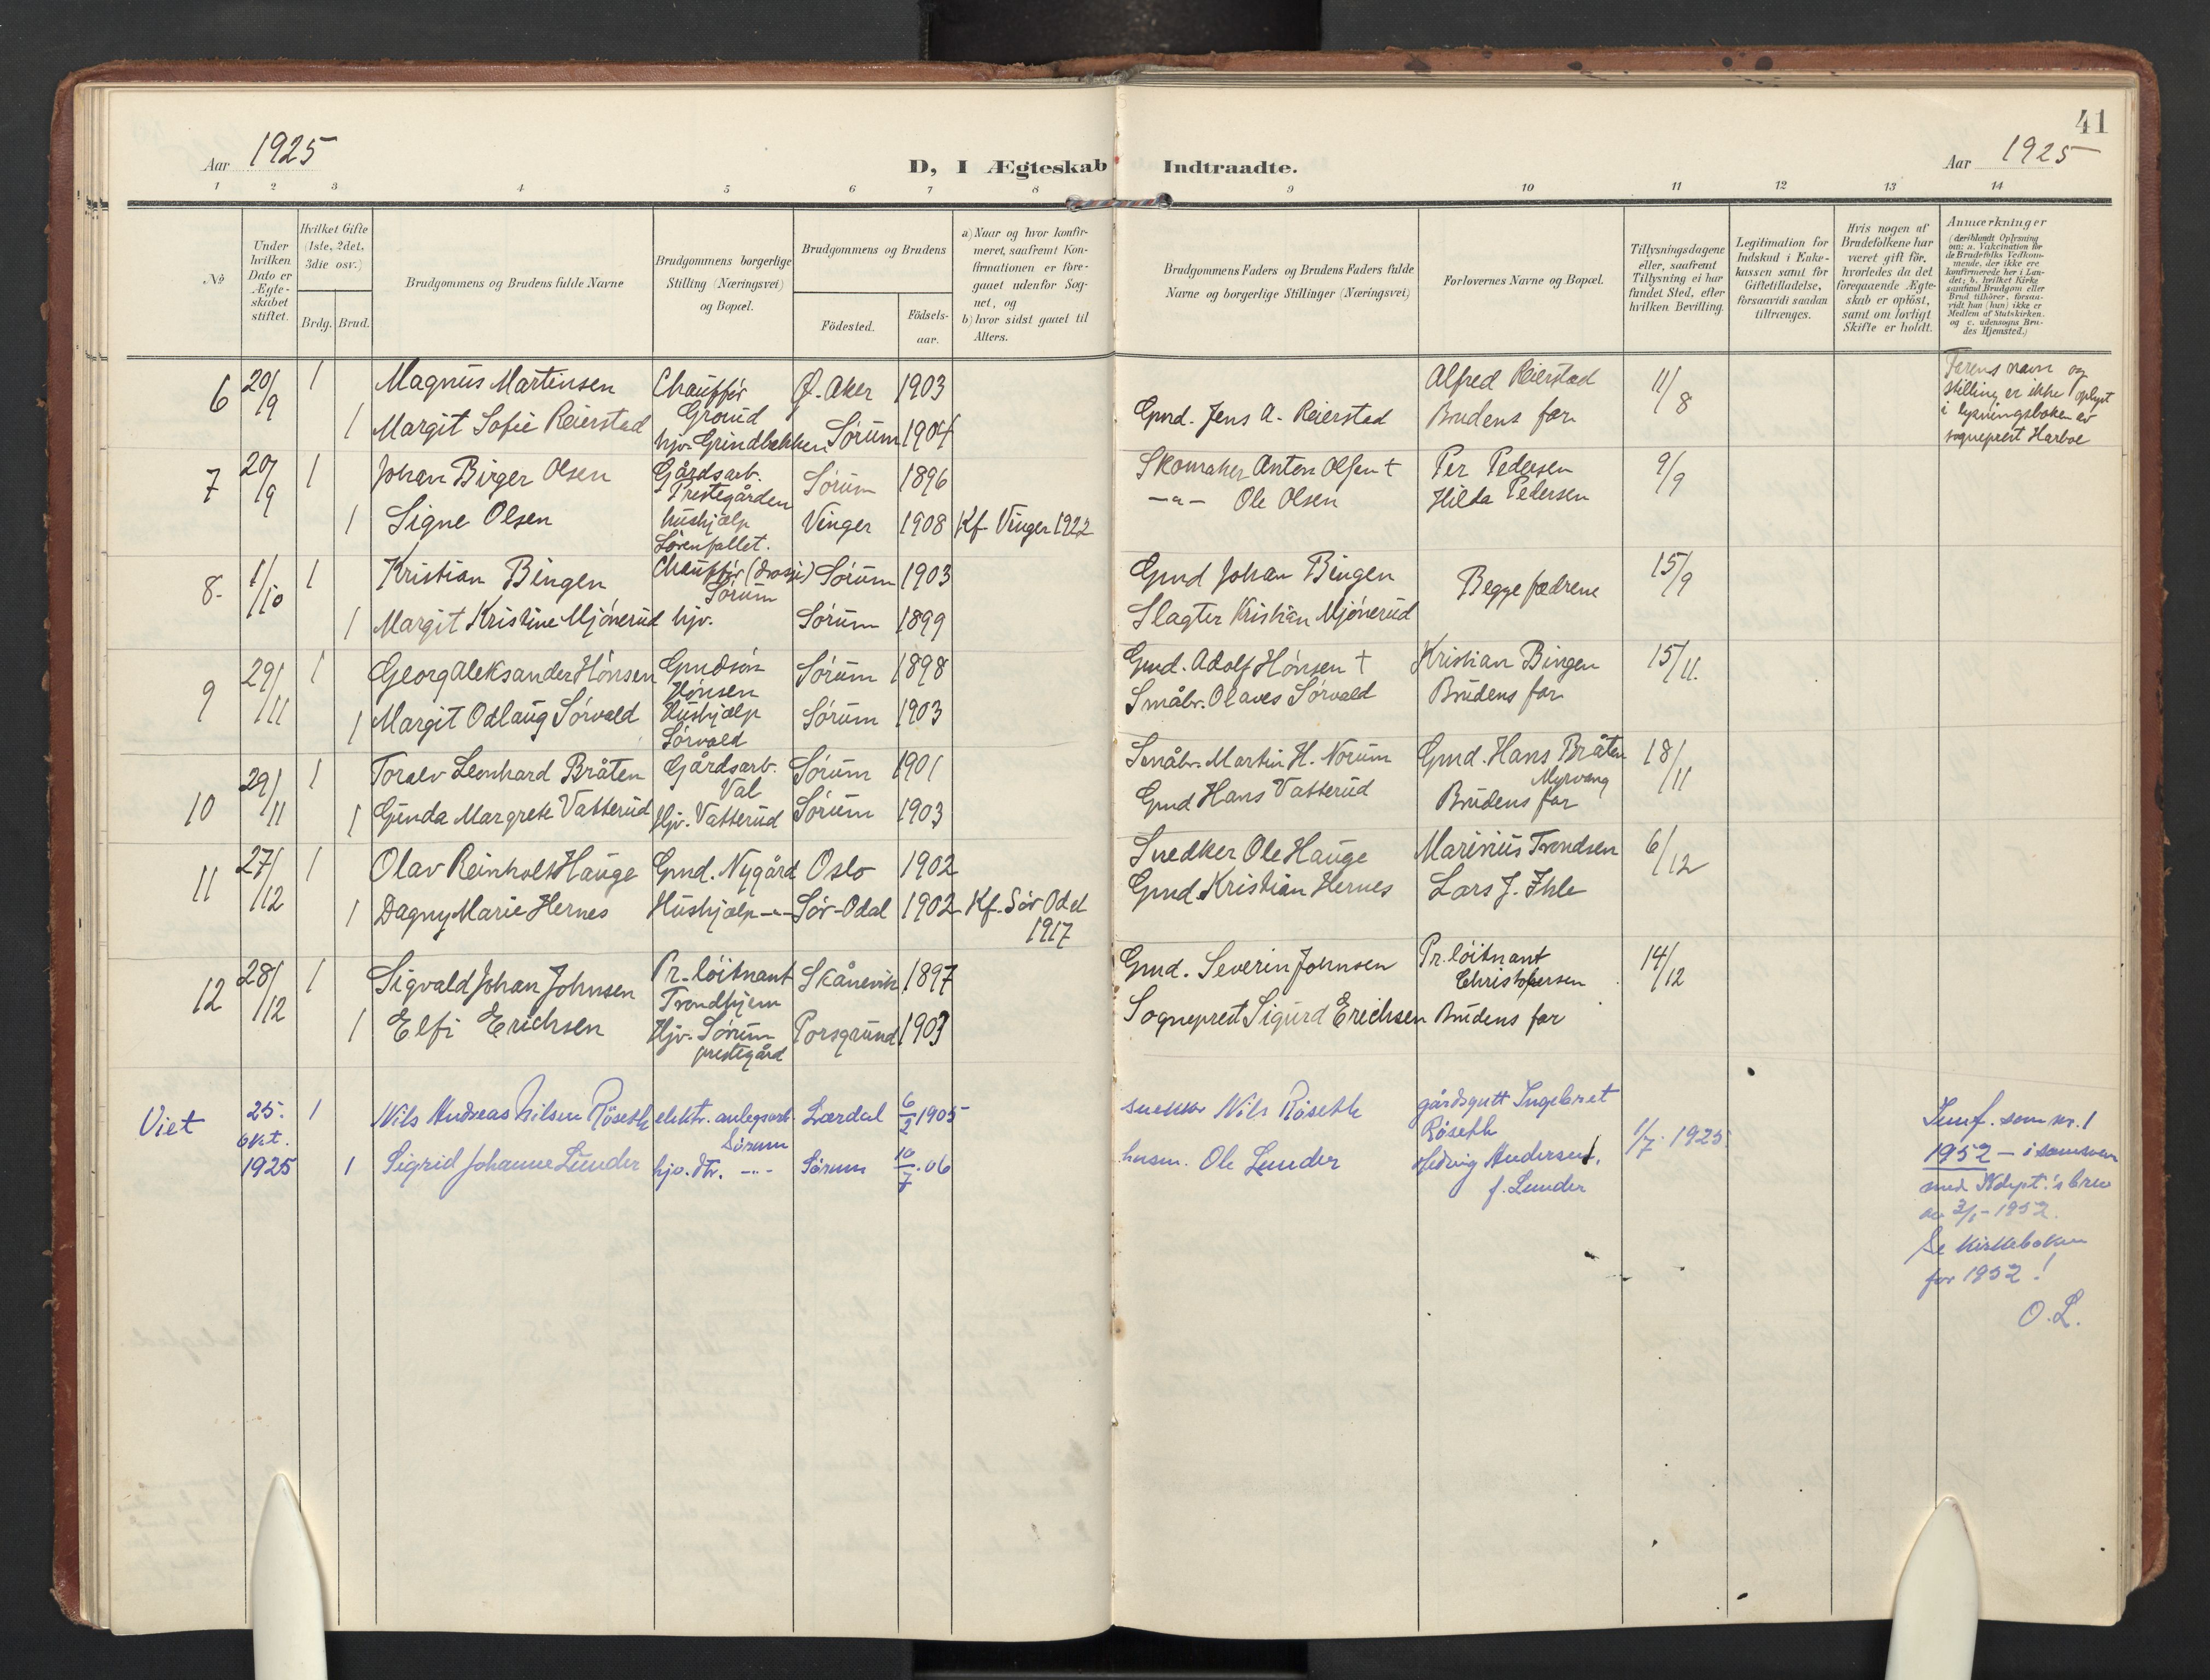 41
Aar 1925
D, I Ægteskab Indtraadte.
Aar 1925
1 2 3 4 5 6 7 8 9 10 11 12 13 14
No
Under hvilken Dato er Ægteskabet stiftet.
Hvilket Gifte (1ste, 2det, 3die osv.)
Brdg. Brud.
Brudgommens og Brudens fulde Navne
Brudgommens borgerlige Stilling (Næringsvei) og Bopæl.
Brudgommens og Brudens
Födested.
Födsels-aar.
a) Naar og hvor konfirmeret, saafremt Konfirmationen er foregaaet udenfor Sognet, og
b) hvor sidst gaaet til Alters.
Brudgommens Faders og Brudens Faders fulde Navne og borgerlige Stillinger (Næringsvei)
Forlovernes Navne og Bopæl.
Tillysningsdagene eller, saafremt Tillysning ei har fundet Sted, efter hvilken Bevilling.
Legitimation for Indskud i Enkekassen samt for Giftetilladelse, forsaavidt saadan tiltrænges.
Hvis nogen af Brudefolkene har været gift för, hvorledes da det foregaaende Ægteskab er oplöst, samt om lovligt Skifte er holdt.
Anmærkninger
(deriblandt Oplysning om: a. Vakcination for de Brudefolks Vedkommende, der ikke ere konfirmerede her i Landet; b. hvilket Kirkesamfund Brudgom eller Brud tilhörer, forsaavidt han (hun) ikke er Medlem af Statskirken, og c. udensogns Brudes Hjemsted.)
6 20/9 1 Magnus Martinsen Chauffør Grorud Ø. Aker 1903 Alfred Reierstad 11/8
1 Margit Sofie Reierstad hjv. Grindbakken Sørum 1904 Gmd. Jens A. Reierstad Brudens far
Farens navn og
stilling er ikke oplyst
i lysningsboken av
sogneprest Harboe
7 20/9 1 Johan Birger Olsen Gårdsarb. Prestegården Sørum 1896 Skomaker Anton Olsen † Per Pedersen 9/9
1 Signe Olsen hushjælp Sørenfallet. Vinger 1908 Kf. Vinger 1922 —"— Ole Olsen Hilda Pedersen
8. 1/10 1 Kristian Bingen Chauffør (drosje) Sørum Sørum 1903 Gmd Johan Bingen Begge fædrene 15/9
1 Margit Kristine Mjønerud hjv. Sørum 1899 Slagter Kristian Mjønerud
9 29/11 1 Georg Aleksander Hønsen Gmdsøn Hønsen Sørum 1898 Gmd. Adolf Hønsen † Kristian Bingen 15/11.
1 Margit Odlaug Sørvald Hushjælp Sørvald Sørum 1903 Småbr. Olaves Sørvald Brudens far
10 29/11 1 Toralv Leonhard Bråten Gårdsarb. Val Sørum 1901 Småbr. Martin H. Norum Gmd. Hans Bråten Myrvang 18/11
1 Gunda Margrete Vatterud Hjv. Vatterud Sørum 1903 Gmd Hans Vatterud Brudens far
11 27/12 1 Olav Reinholt Hauge Gmd. Nygård Oslo 1902 Snedker Ole Hauge Marinius Trondsen 6/12
1 Dagny Marie Hernes Hushjælp —"— Sør-Odal 1902 Kf. Sør Odal 1917 Gmd. Kristian Hernes Lars J. Ihle
12 28/12 1 Sigvald Johan Johnsen Pr. løitnant Trondhjem Skånevik 1897 Gmd. Severin Johnsen Pr. løitnant Christophersen 14/12
1 Elfi Erichsen Hjv. Sørum prestegård Porsgrund 1903 Sogneprest Sigurd Erichsen Brudens far
Viet 25. okt. 1925 1 Nils Andreas Nilsen Röseth elektr. anlegsarb. Sörum Lærdal 6/2 1905 snekker Nils Röseth gårdsgutt Ingebret Röseth 1/7. 1925.
1 Sigrid Johanne Lunder hjv. dtr. —"— Sörum 16/7. 06 husm. Ole Lunder Hedvig Andersen f. Lunder
Innf. som nr. 1
1952 — i samsvar
med Kdept.'s brev
av 3/1 - 1952.
Se kirkeboken
for 1952!
O. L.